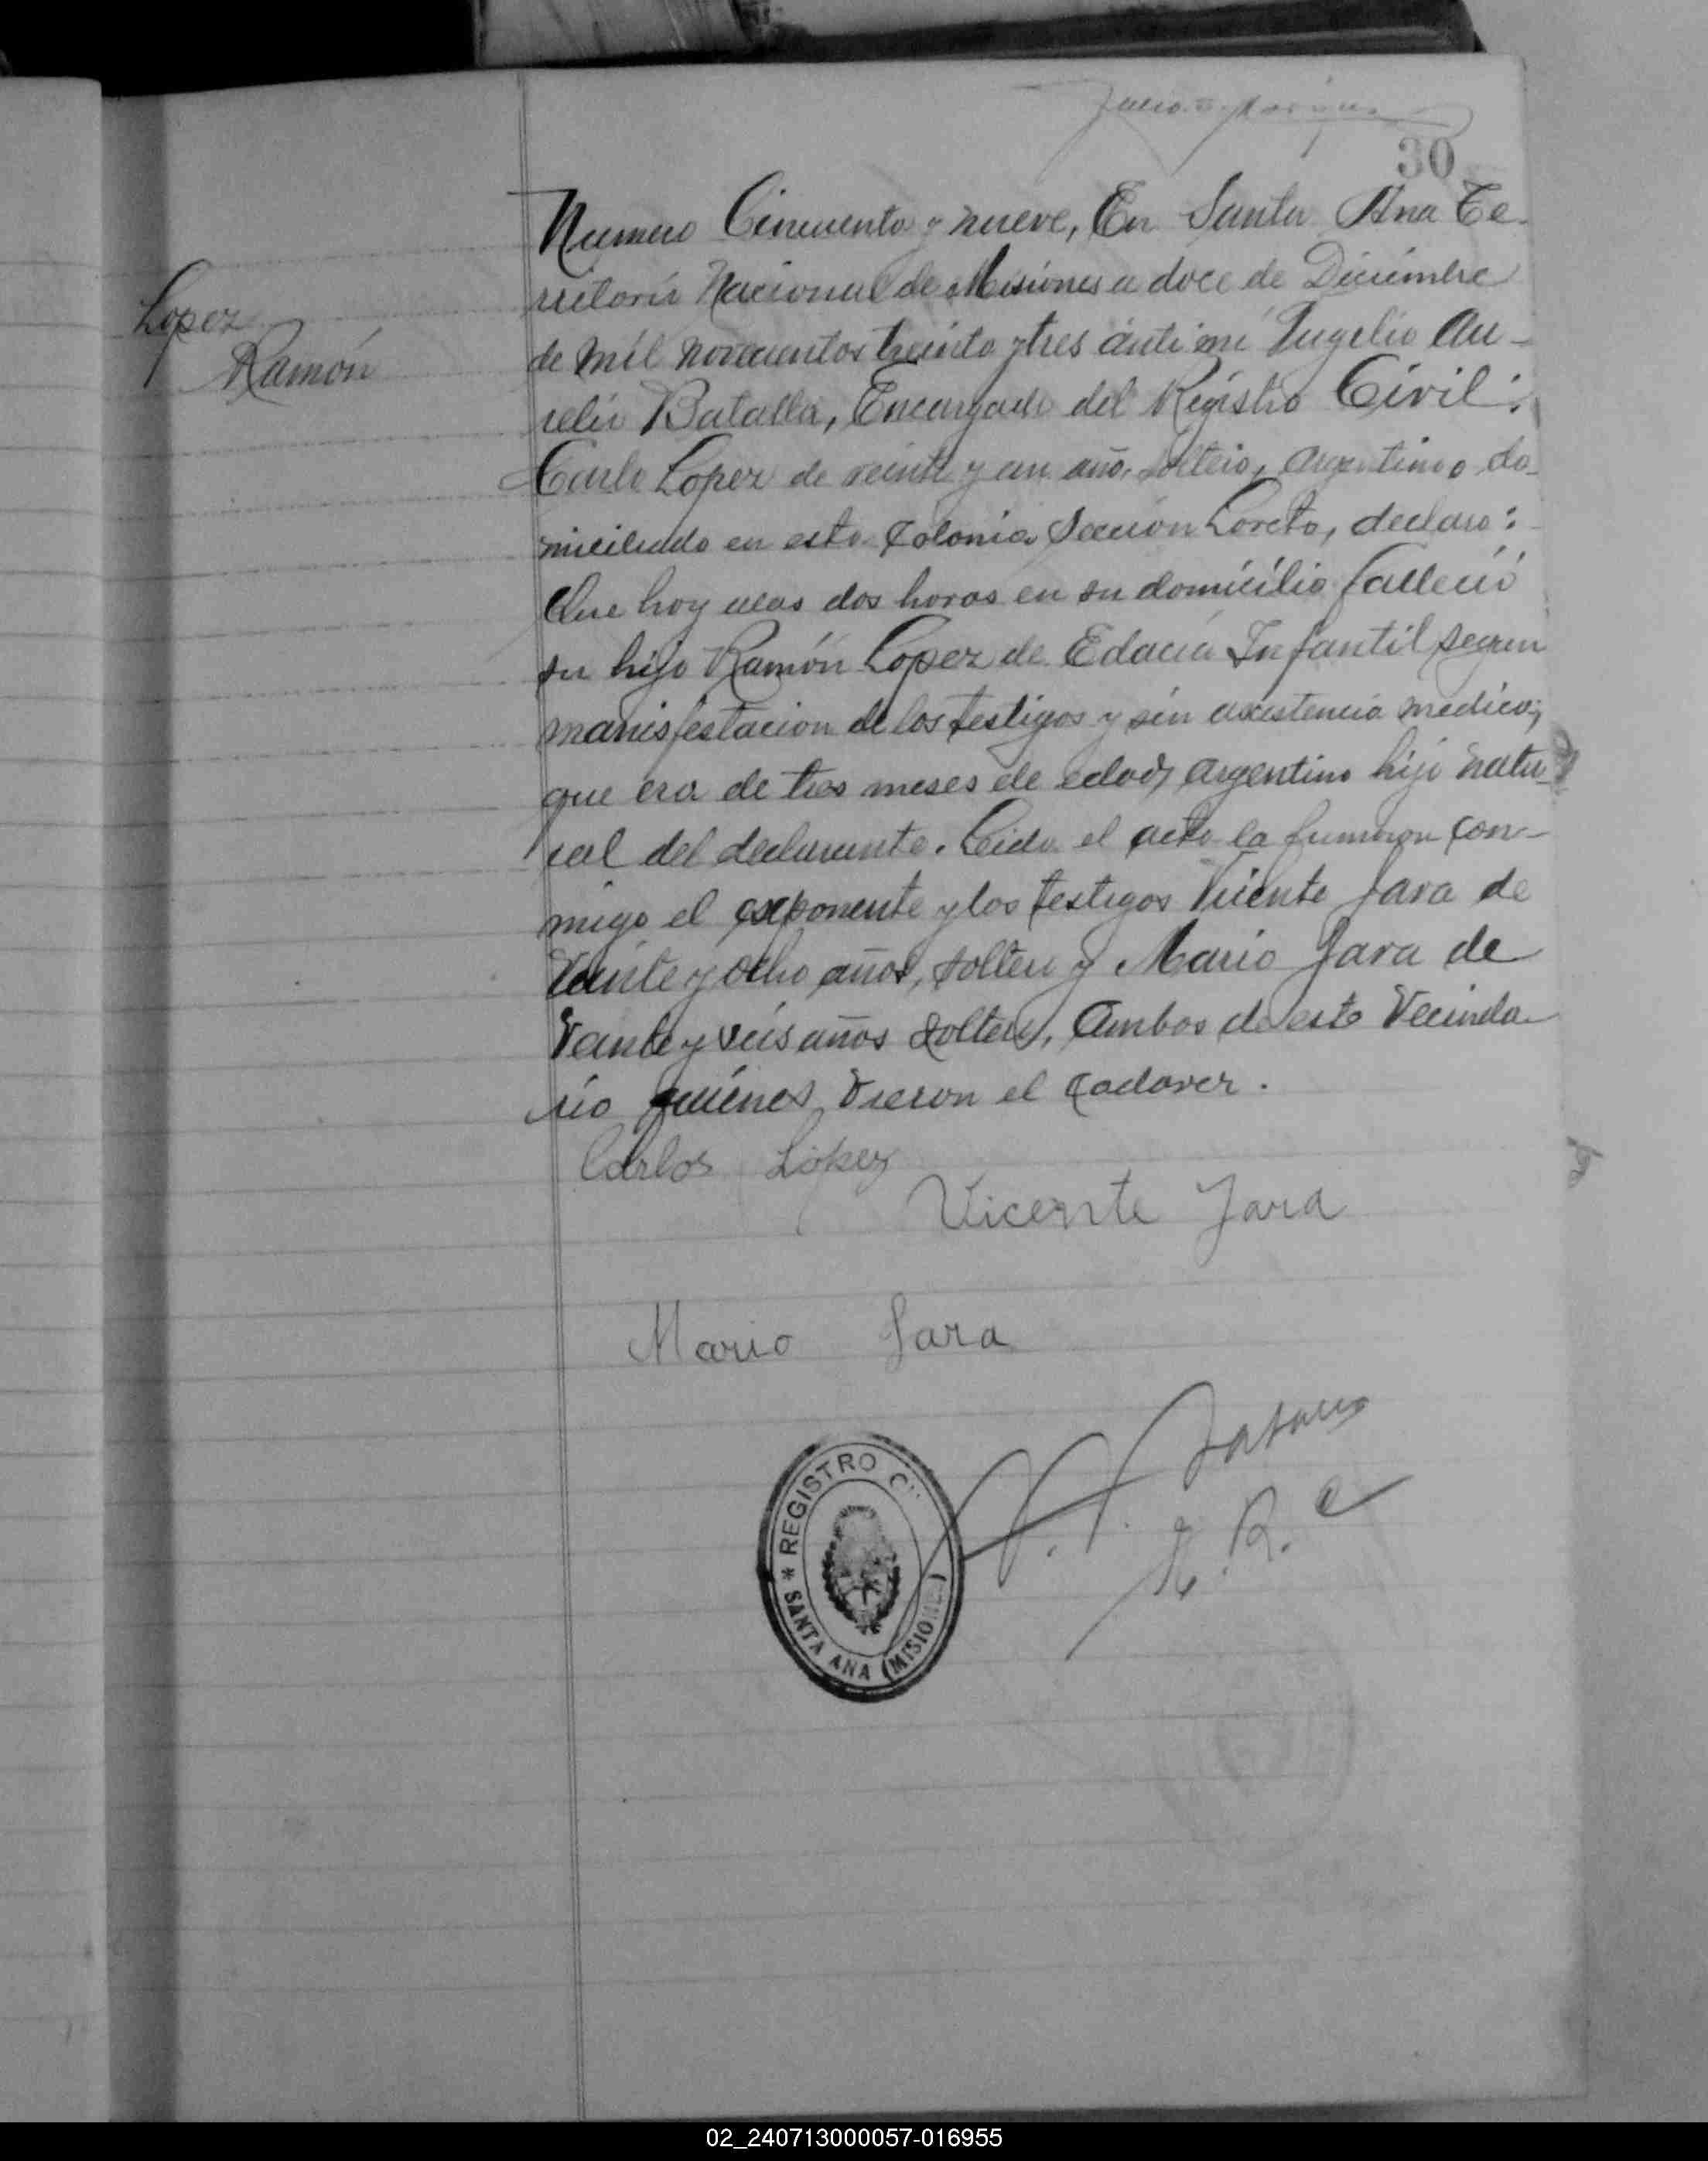 30
Lopez
Ramón
Numero Cincuenta y nueve, En Santa Ana Te-
rritorio Nacional de Misiones a doce de Diciembre
de mil novecientos treinta y tres ánte mí Au-
relio Batalla, Encargado del Registro Civil:
Carlo Lopez de veinte y un año, soltero, argentino, do-
miciliado en esta Colonia, Sección Loreto, declaro:
Que hoy alas dos horas en su domicilio falleció
su hijo Ramón Lopez de Infantil segun
manisfestacion de los testigos y sin asistencia médica;
que era de tres meses de edad, argentino hijo natu-
ral del declarante. Leida el acta la firmaron con-
migo el exponente y los testigos Vicente Jara de
Veinte y ocho años, soltero y Mario Jara de
Veinte y seis años soltero, Ambos de este Vecinda-
rio quiénes vieron el cadaver.
Carlos López
Vicente Jara
Mario Jara
REGISTRO
* SANTA ANA (MISIONES)
02_240713000057-016955